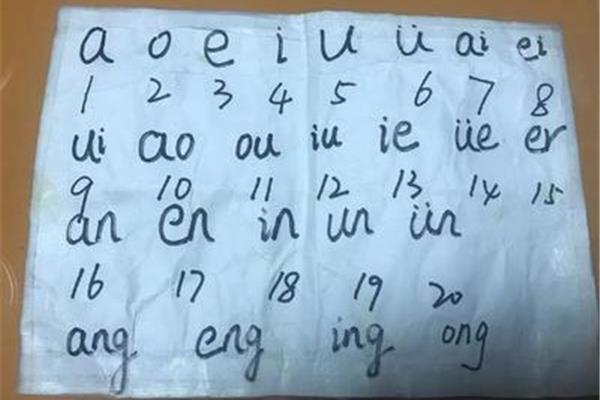 a o e i u ü ai ei
1 2 3 4 5 6 7 8
ui ao ou iu ie üe er
9 10 11 12 13 14 15
an en in un ün
16 17 18 19 20
ang eng ing ong